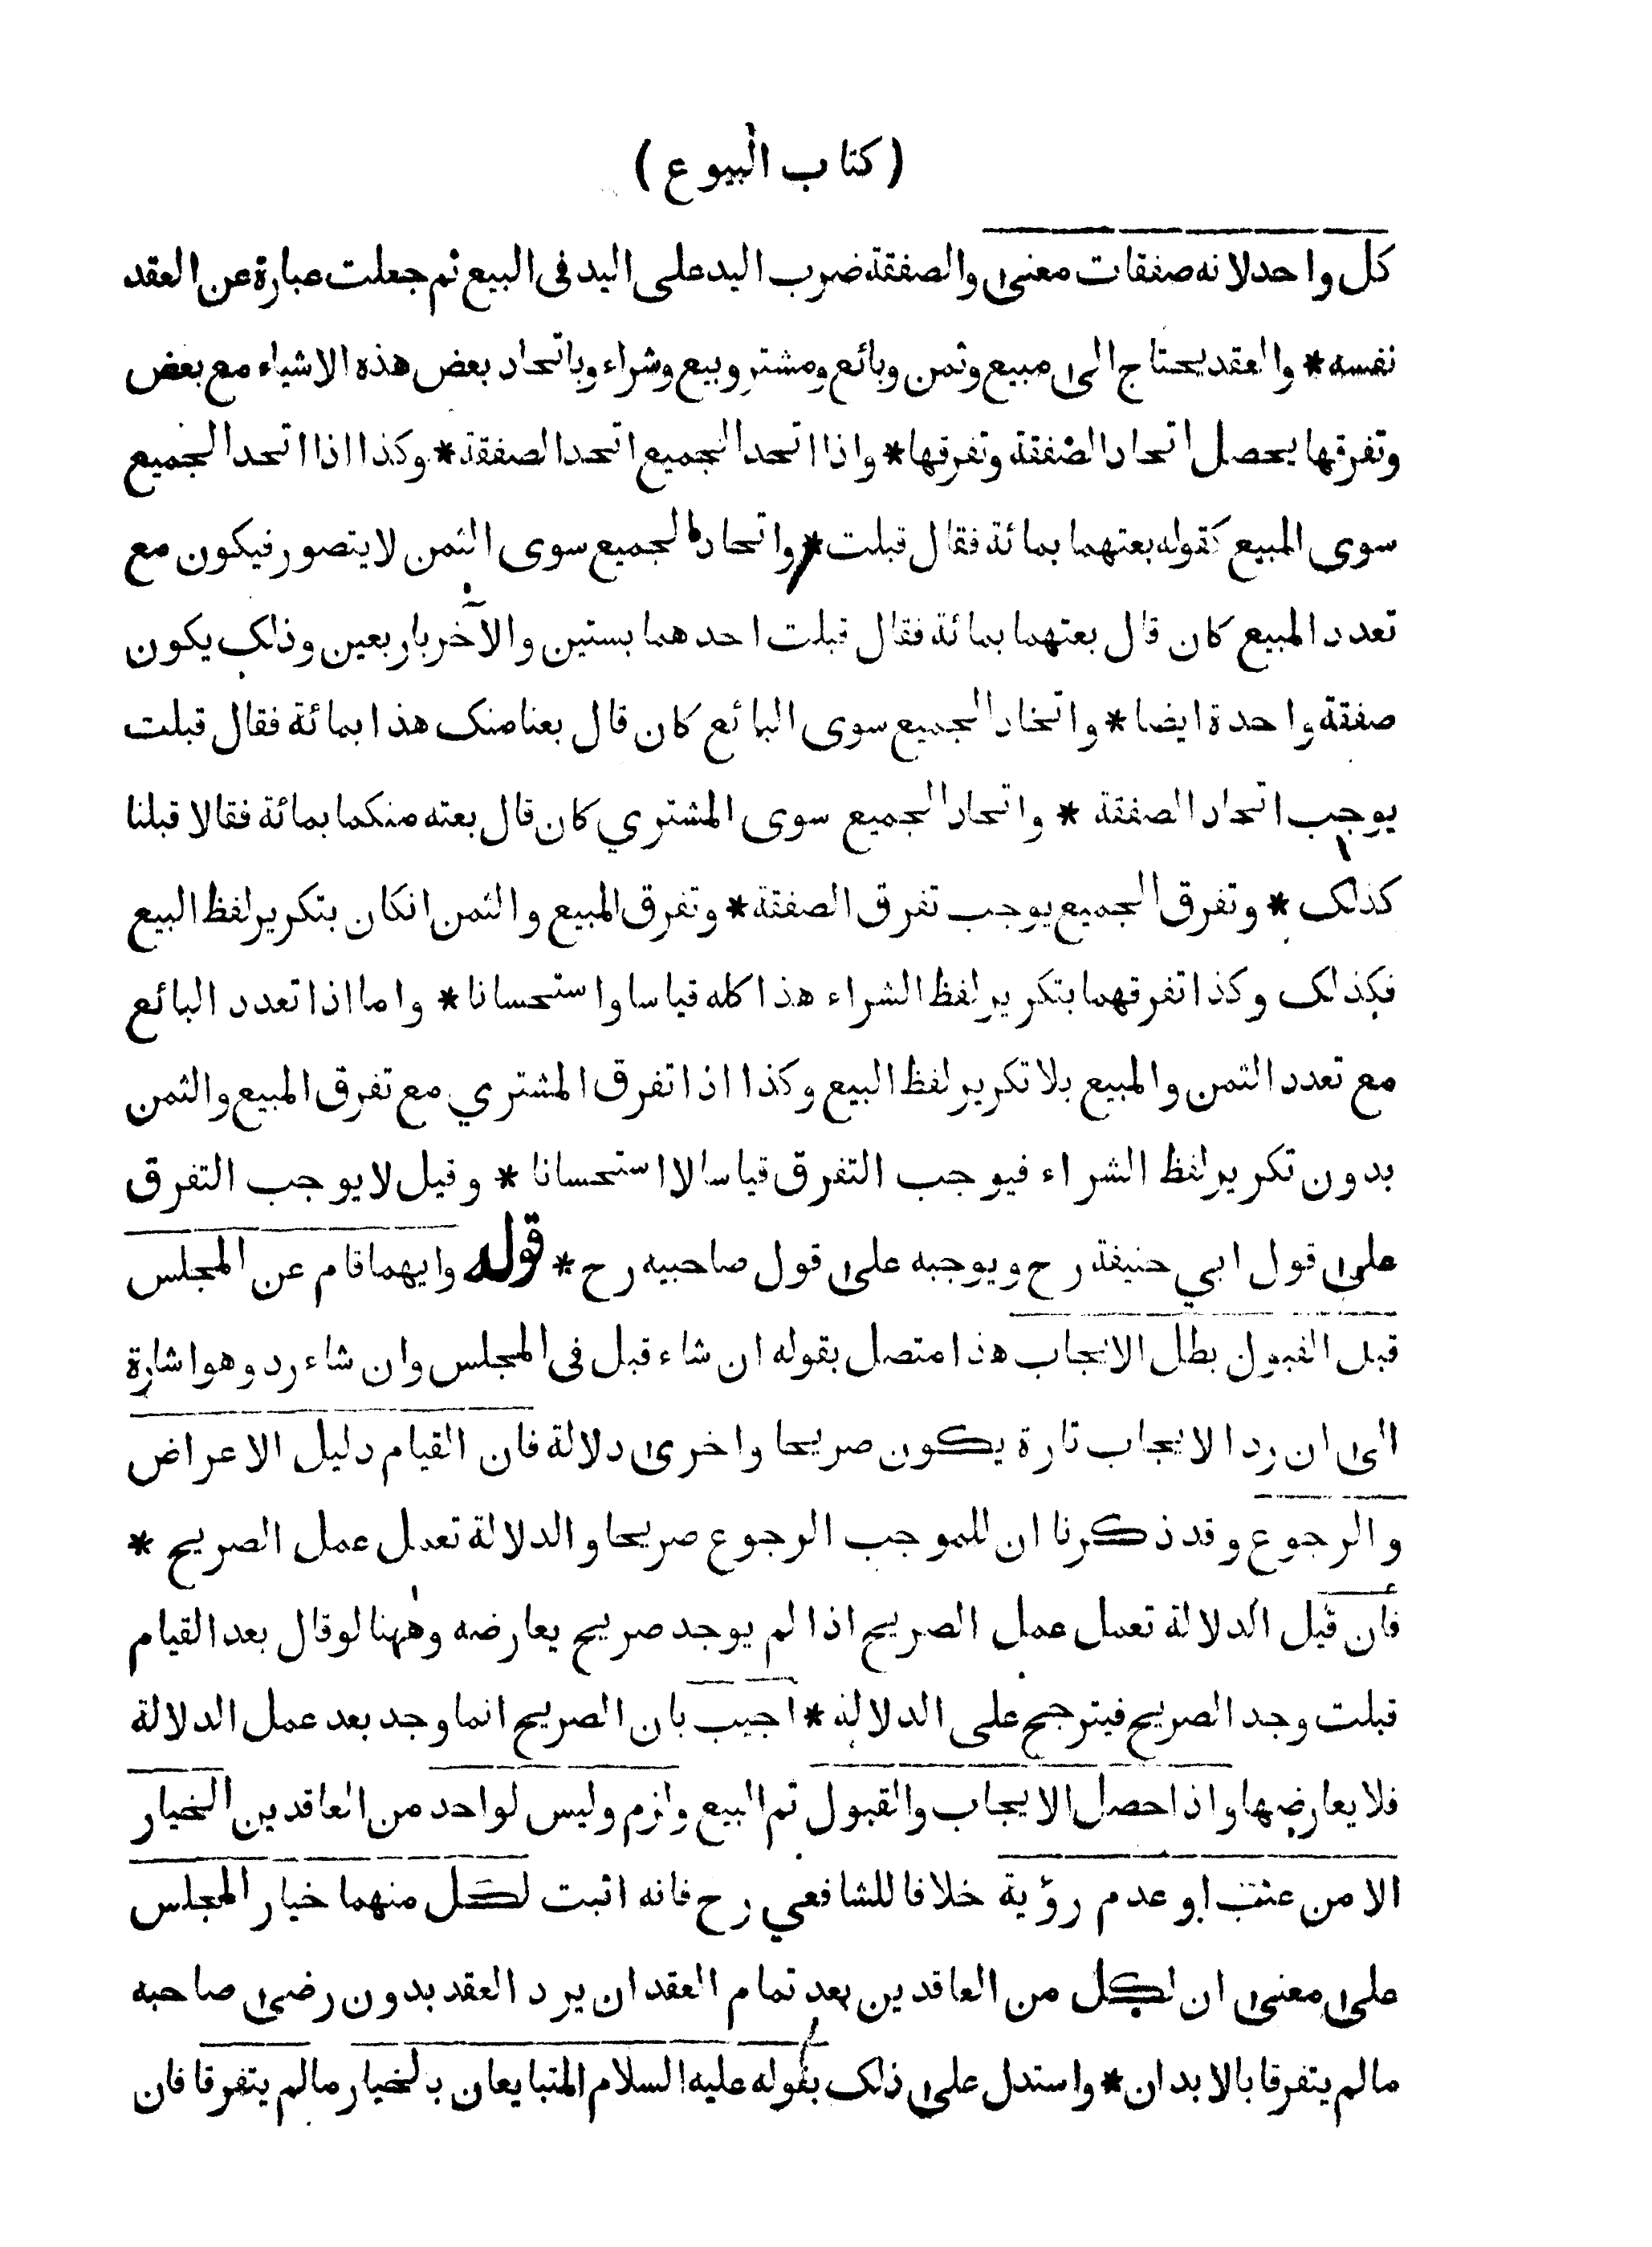 (كتاب البيوع)
كل واحد لانه صفقات معنى والصفقة ضرب اليد على اليد فى البيع ثم جعلت عبارة عن العقد
نفسه * والعقد يحتاج الى مبيع وثمن وبائع ومشتر وبيع وشراء وباتحاد بعض هذه الاشياء مع بعض
وتفرقها يحصل اتحاد الصفقة وتفرقها * واذا اتحد الجميع اتحد الصفقة * وكذا اذا اتحد الجميع
سوى المبيع كقوله بعتهما بمائة فقال قبلت * واتحاد الجميع سوى الثمن لا يتصور فيكون مع
تعدد المبيع كان قال بعتهما بمائة فقال قبلت احدهما بستين والآخر باربعين وذلك يكون
صفقة واحدة ايضا * واتحاد الجميع سوى البائع كان قال بعنا منك هذا بمائة فقال قبلت
يوجب اتحاد الصفقة * واتحاد الجميع سوى المشتري كان قال بعته منكما بمائة فقالا قبلنا
كذلك * وتفرق الجميع يوجب تفرق الصفقة * وتفرق المبيع والثمن انكان بتكرير لفظ البيع
فكذلك وكذا تفرقهما بتكرير لفظ الشراء هذا كله قياسا واستحسانا * واما اذا تعدد البائع
مع تعدد الثمن والمبيع بلا تكرير لفظ البيع وكذا اذا تفرق المشتري مع تفرق المبيع والثمن
بدون تكرير لفظ الشراء فيوجب التفرق قياسا لا استحسانا * وقيل لا يوجب التفرق
على قول ابي حنيفة رح ويوجبه على قول صاحبيه رح * قوله وايهما قام عن المجلس
قبل القبول بطل الايجاب هذا متصل بقوله ان شاء قبل فى المجلس وان شاء رد وهو اشارة
الى ان رد الايجاب تارة يكون صريحا واخرى دلالة فان القيام دليل الاعراض
والرجوع وقد ذكرنا ان للموجب الرجوع صريحا والدلالة تعمل عمل الصريح *
فان قيل الدلالة تعمل عمل الصريح اذا لم يوجد صريح يعارضه وههنا لو قال بعد القيام
قبلت وجد الصريح فيترجح على الدلالة * اجيب بان الصريح انما وجد بعد عمل الدلالة
فلا يعارضها واذا حصل الايجاب والقبول تم البيع ولزم وليس لواحد من العاقدين الخيار
الا من عيب او عدم رؤية خلافا للشافعي رح فانه اثبت لكل منهما خيار المجلس
على معنى ان لكل من العاقدين بعد تمام العقد ان يرد العقد بدون رضى صاحبه
مالم يتفرقا بالابدان * واستدل على ذلك بقوله عليه السلام المتبايعان بالخيار مالم يتفرقا فان